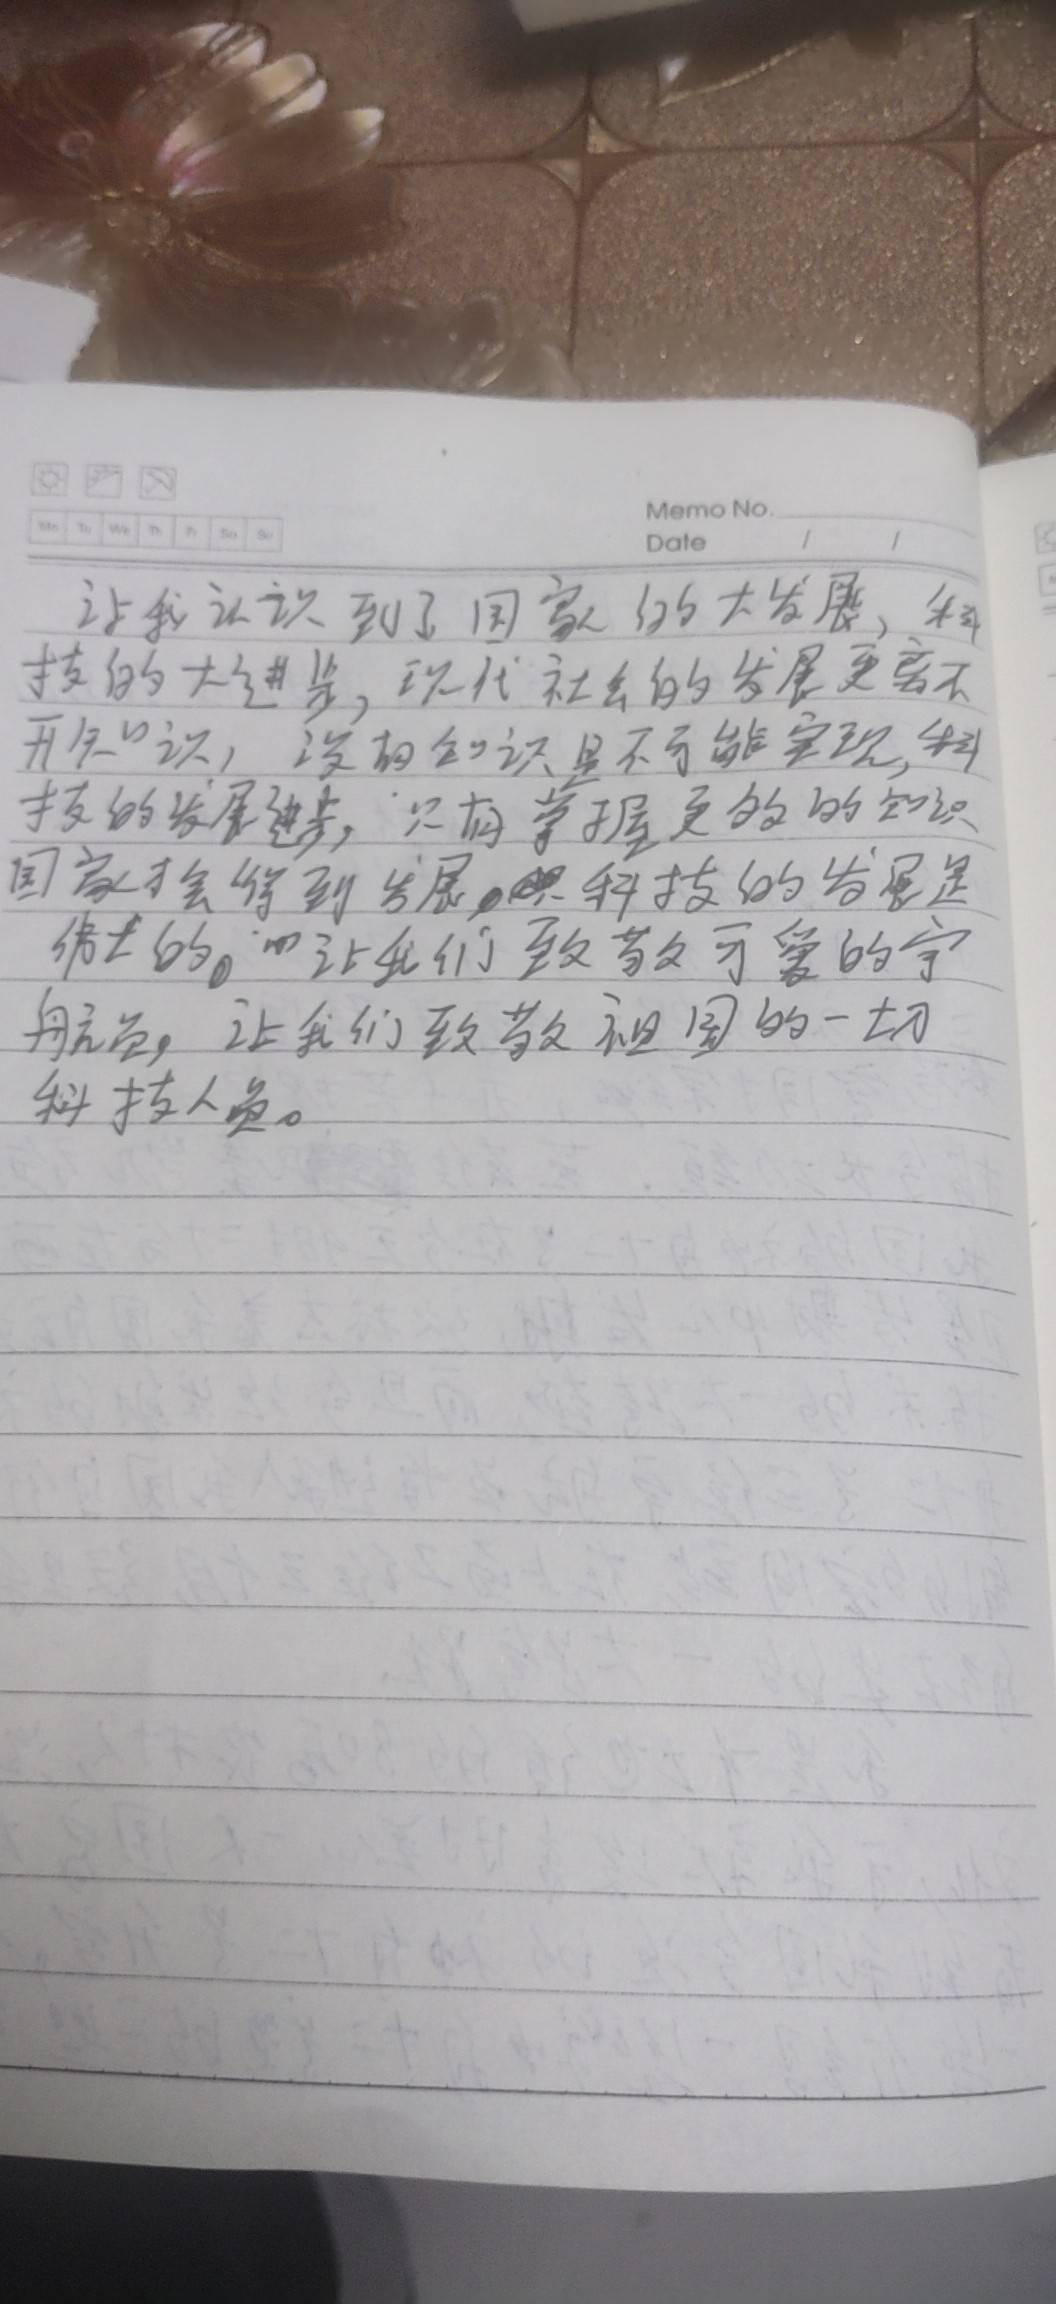 Mo Tu We Th Fr Sa Su
Memo No.
Date / /
让我认识到了国家的大发展、科
技的大进步，现代社会的发展更离不
开知识，没有知识是不可能实现，科
技的发展进步，只有掌握更多的知识
国家才会得到发展。科技的发展是
伟大的。让我们致敬可爱的宇
航员，让我们致敬祖国的一切
科技人员。